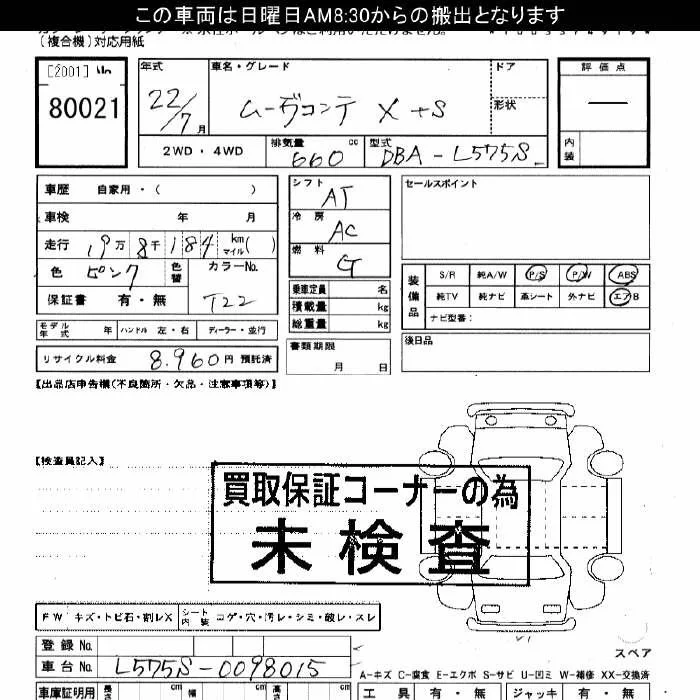 この車両は日曜日AM8:30からの搬出となります
(複合機)対応用紙
[2001] No.
80021
年式
22/7月
車名・グレード
ムーヴコンテ X +S
ドア
形状
評価点
—
内装
2WD・4WD
排気量 660 cc
型式 DBA-L575S
車歴 自家用・( )
車検 年 月
走行 19万8千184 km マイル( )
色 ピンク 色替
カラーNo. T22
保証書 有・無
シフト AT
冷房 AC
燃料 G
乗車定員 名
積載量 kg
総重量 kg
セールスポイント
装備品
S/R 純A/W P/S P/W ABS
純TV 純ナビ 革シート 外ナビ エアB
ナビ型番:
モデル年式 年 ハンドル 左・右 ディーラー・並行
リサイクル料金 8,960円 預託済
書類期限 月 日
後日品
【出品店申告欄(不良箇所・欠品・注意事項等)】
【検査員記入】
買取保証コーナーの為
未検査
FW キズ・トビ石・割レX
シート内装 コゲ・穴・汚レ・シミ・破レ・スレ
スペア
登録No.
車台No. L575S-0098015
A-キズ C-腐食 E-エクボ S-サビ U-凹ミ W-補修 XX-交換済
車庫証明用 長さ cm 幅 cm 高さ cm
工具 有・無 ジャッキ 有・無